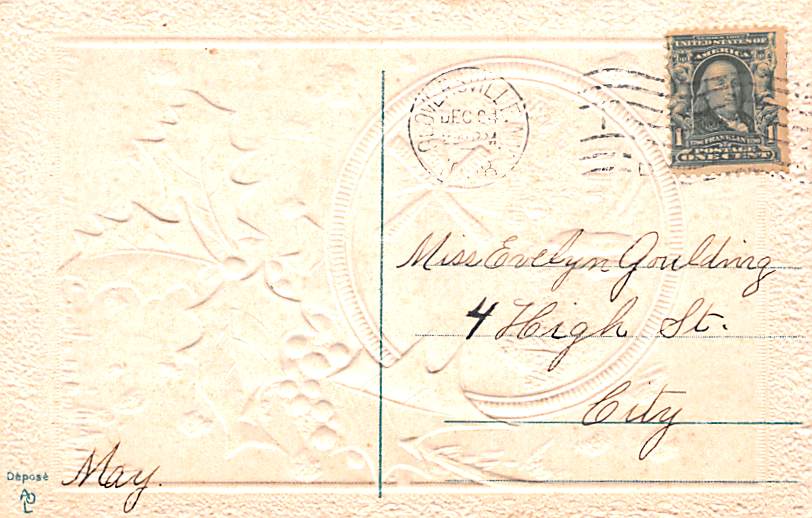 GLOVERSVILLE, N.Y.
DEC 24
1908
UNITED STATES OF
AMERICA
1 FRANKLIN 1
POSTAGE
ONE CENT
Miss Evelyn Goulding
4 High St.
City
May.
Déposé